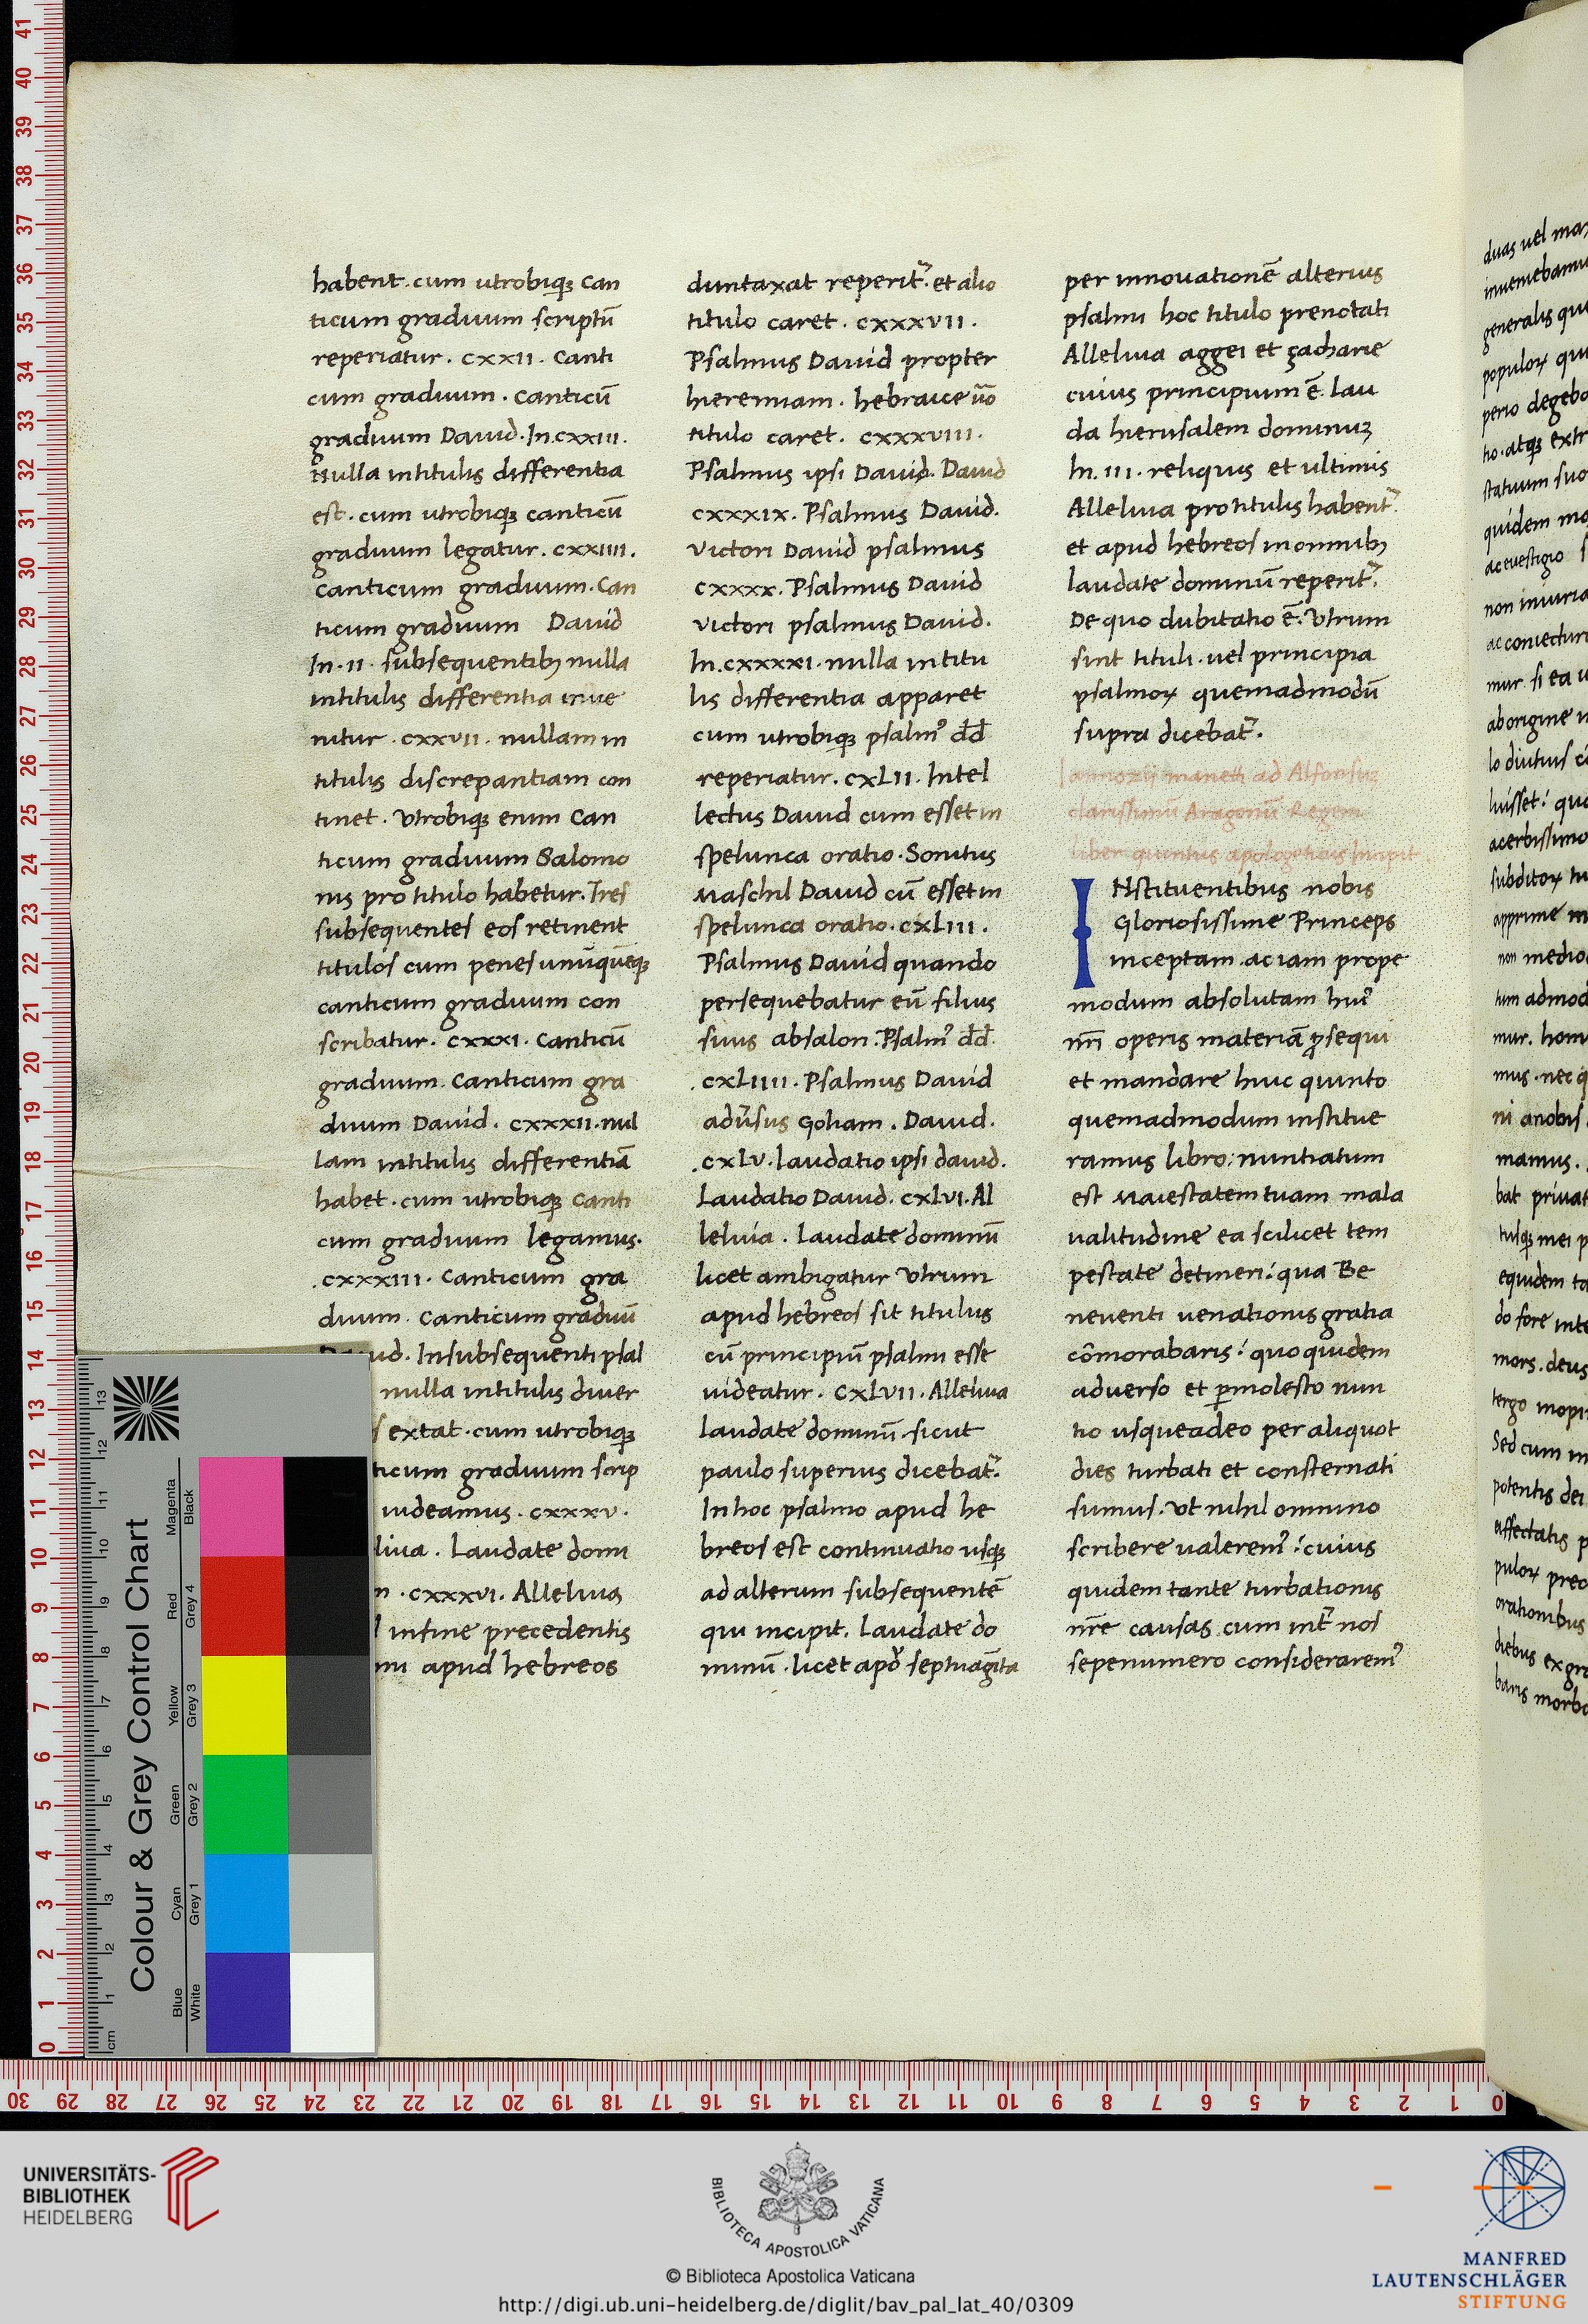 habent. cum utrobiqȝ can
ticum graduum scriptū
reperiatur. cxxii. canti
cum graduum. canticū
graduum David. In.cxxiii.
nulla intitulis differentia
est. cum utrobiqȝ canticū
graduum legatur. cxxiiii.
canticum graduum. Can
ticum graduum David
In.ii. subsequentibȝ nulla
intitulis differentia inue
nitur. cxxvii. nullam in
titulis discrepantiam con
tinet. Vtrobiqȝ enim Can
ticum graduum Salomo
nis pro titulo habetur. Tres
subsequentes eos retinent
titulos cum penes unūquēqȝ
canticum graduum con
scribatur. cxxxi. Canticū
graduum. Canticum gra
duum David. cxxxii. nul
lam intitulis differentiā
habet. cum utrobiqȝ canti
cum graduum legamus.
.cxxxiii. Canticum gra
duum. Canticum graduū
ud. Insubsequenti psal
nulla intitulis diuer
extat. cum utrobiqȝ
ticum graduum scrip
uideamus. cxxxv.
luia. Laudate domi
. cxxxvi. Alleluia
infine precedentis
mi apud hebreos
duntaxat reperit᷑. et alio
titulo caret. cxxxvii.
Psalmus David propter
hieremiam. hebraice u̅o
titulo caret. cxxxviii.
Psalmus ipsi David. David
cxxxix. Psalmus David.
victori David psalmus
cxxxx. Psalmus David
victori psalmus David.
In.cxxxxi. nulla intitu
lis differentia apparet
cum utrobiqȝ psalmꝰ dd̄
reperiatur. cxLii. Intel
lectus David cum esset in
spelunca oratio. Sonitus
Maschil David cū esset in
spelunca oratio. cxLiii.
Psalmus David quando
persequebatur eū filius
suus absalon. Psalmꝰ dd̄.
.cxLiiii. Psalmus David
adu̅sus Goliam. David.
.cxLv. laudatio ipsi david.
Laudatio David. cxLvi. Al
leluia. Laudate dominū
licet ambigatur Vtrum
apud hebreos sit titulus
cū principiū psalmi esse
uideatur. cxLvii. Alleluia
laudate dominū. sicut
paulo superius dicebat᷑.
In hoc psalmo apud he
breos est continuatio usqȝ
ad alterum subsequentē
qui incipit. Laudate do
minū. licet apđ septuagīta
per innovationē alterius
psalmi hoc titulo prenotati
Alleluia aggei et çacharie
cuius principium ē. Lau
da hierusalem dominuȝ
In.iii. reliquis et ultimis
Alleluia pro titulis habent᷑.
et apud hebreos in omnibȝ
laudate dominū reperit᷑.
De quo dubitatio ē. Vtrum
sint tituli. uel principia
psalmoꝝ quemadmodū
supra dicebat᷑.
Iannozii manetti ad Alfonsuȝ
clarissimū Aragonū Regem
liber quintus apologeticus Incipit
INstituentibus nobis
Gloriosissime Princeps
inceptam ac iam prope
modum absolutam huiꝰ
nr̄i operis materiā ꝓsequi
et mandare huic quinto
quemadmodum institue
ramus libro: nuntiatum
est Maiestatem tuam mala
ualitudine ea scilicet tem
pestate detineri: qua Be
neventi uenationis gratia
cōmorabaris: quo quidem
adverso et ꝑmolesto nun
tio usqueadeo per aliquot
dies turbati et consternati
sumus. Vt nihil omnino
scribere ualeremꝰ: cuius
quidem tante turbationis
nr̄e causas cum int᷑ nos
sepenumero consideraremꝰ
duas uel
generalis
populoꝝ
perio
statuum
quidem
non iniuria
mur. si ea
ab origine
lo diutius
luisset:
acerbissimo
subditoꝝ
apprime
non
tum
mur.
mus. nec
ni anobis
mamus.
bat
mei
equidem
do fore
mors. deus
tergo
Sed cum
potentis dei
affectatis
puloꝝ
orationibus
diebus
baris morbo
Colour & Grey Control Chart
Magenta Black
Red Grey 4
Yellow Grey 3
Green Grey 2
Cyan Grey 1
Blue White
cm 1 2 3 4 5 6 7 8 9 10 11 12 13
41 40 39 38 37 36 35 34 33 32 31 30 29 28 27 26 25 24 23 22 21 20 19 18 17 16 15 14 13 12 11 10 9 8 7 6 5 4 3 2 1 0
30 29 28 27 26 25 24 23 22 21 20 19 18 17 16 15 14 13 12 11 10 9 8 7 6 5 4 3 2 1 0
UNIVERSITÄTS-
BIBLIOTHEK
HEIDELBERG
BIBLIOTECA APOSTOLICA VATICANA
© Biblioteca Apostolica Vaticana
http://digi.ub.uni-heidelberg.de/diglit/bav_pal_lat_40/0309
MANFRED
LAUTENSCHLÄGER
STIFTUNG